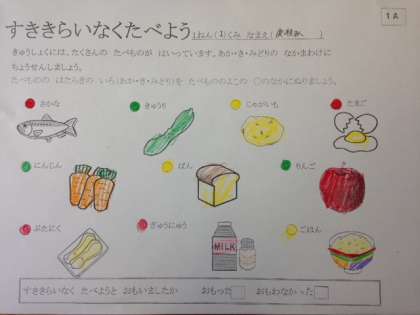 1A
すききらいなくたべよう 1ねん(1)くみ なまえ( )
きゅうしょくには、たくさんの たべものが はいっています。あか・き・みどりの なかまわけに
ちょうせんしましょう。
たべものの はたらきの いろ(あか・き・みどり)を たべもののよこの ○のなかにぬりましょう。
さかな きゅうり じゃがいも たまご
にんじん ぱん りんご
ぶたにく ぎゅうにゅう ごはん
MILK
すききらいなく たべようと おもいましたか おもった□ おもわなかった□